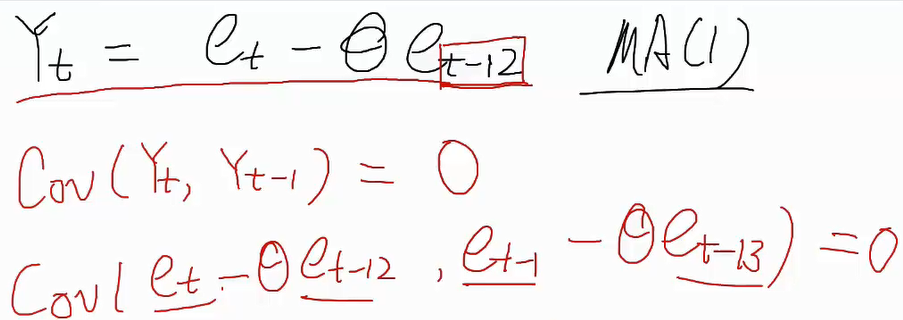 Yt = et - θ et-12 MA(1)
Cov(Yt, Yt-1) = 0
Cov(et - θet-12, et-1 - θet-13) = 0